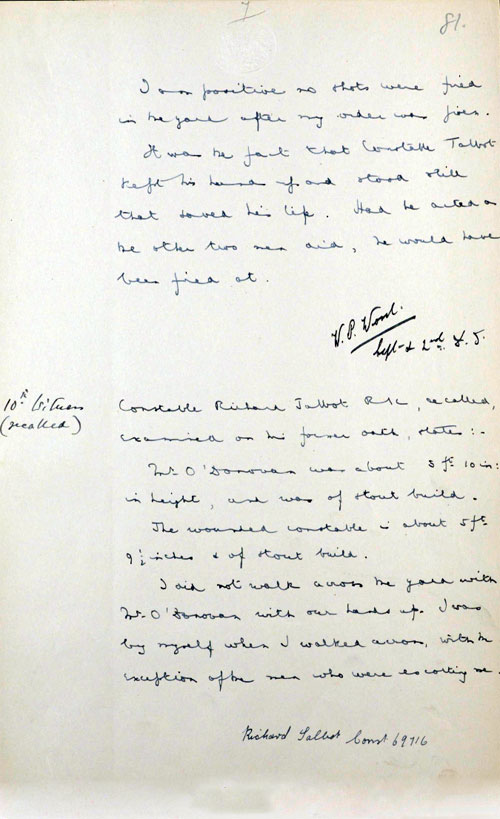 7
81.
I am positive no shots were fired
in the yard after my order was given.
It was the fact that Constable Talbot
kept his hands up and stood still
that saved his life. Had he acted as
the other two men did, he would have
been fired at.
Lieut & 2nd
10th Witness
(recalled)
Constable Richard Talbot R.I.C, recalled,
examined on his former oath, states:-
Mr. O'Donovan was about 5 ft 10 in:
in height, and was of stout build.
The wounded constable is about 5 ft
9½ inches & of stout build.
I did not walk across the yard with
Mr. O'Donovan with our hands up. I was
by myself when I walked across, with the
exception of the men who were escorting me.
Richard Talbot Const 69716